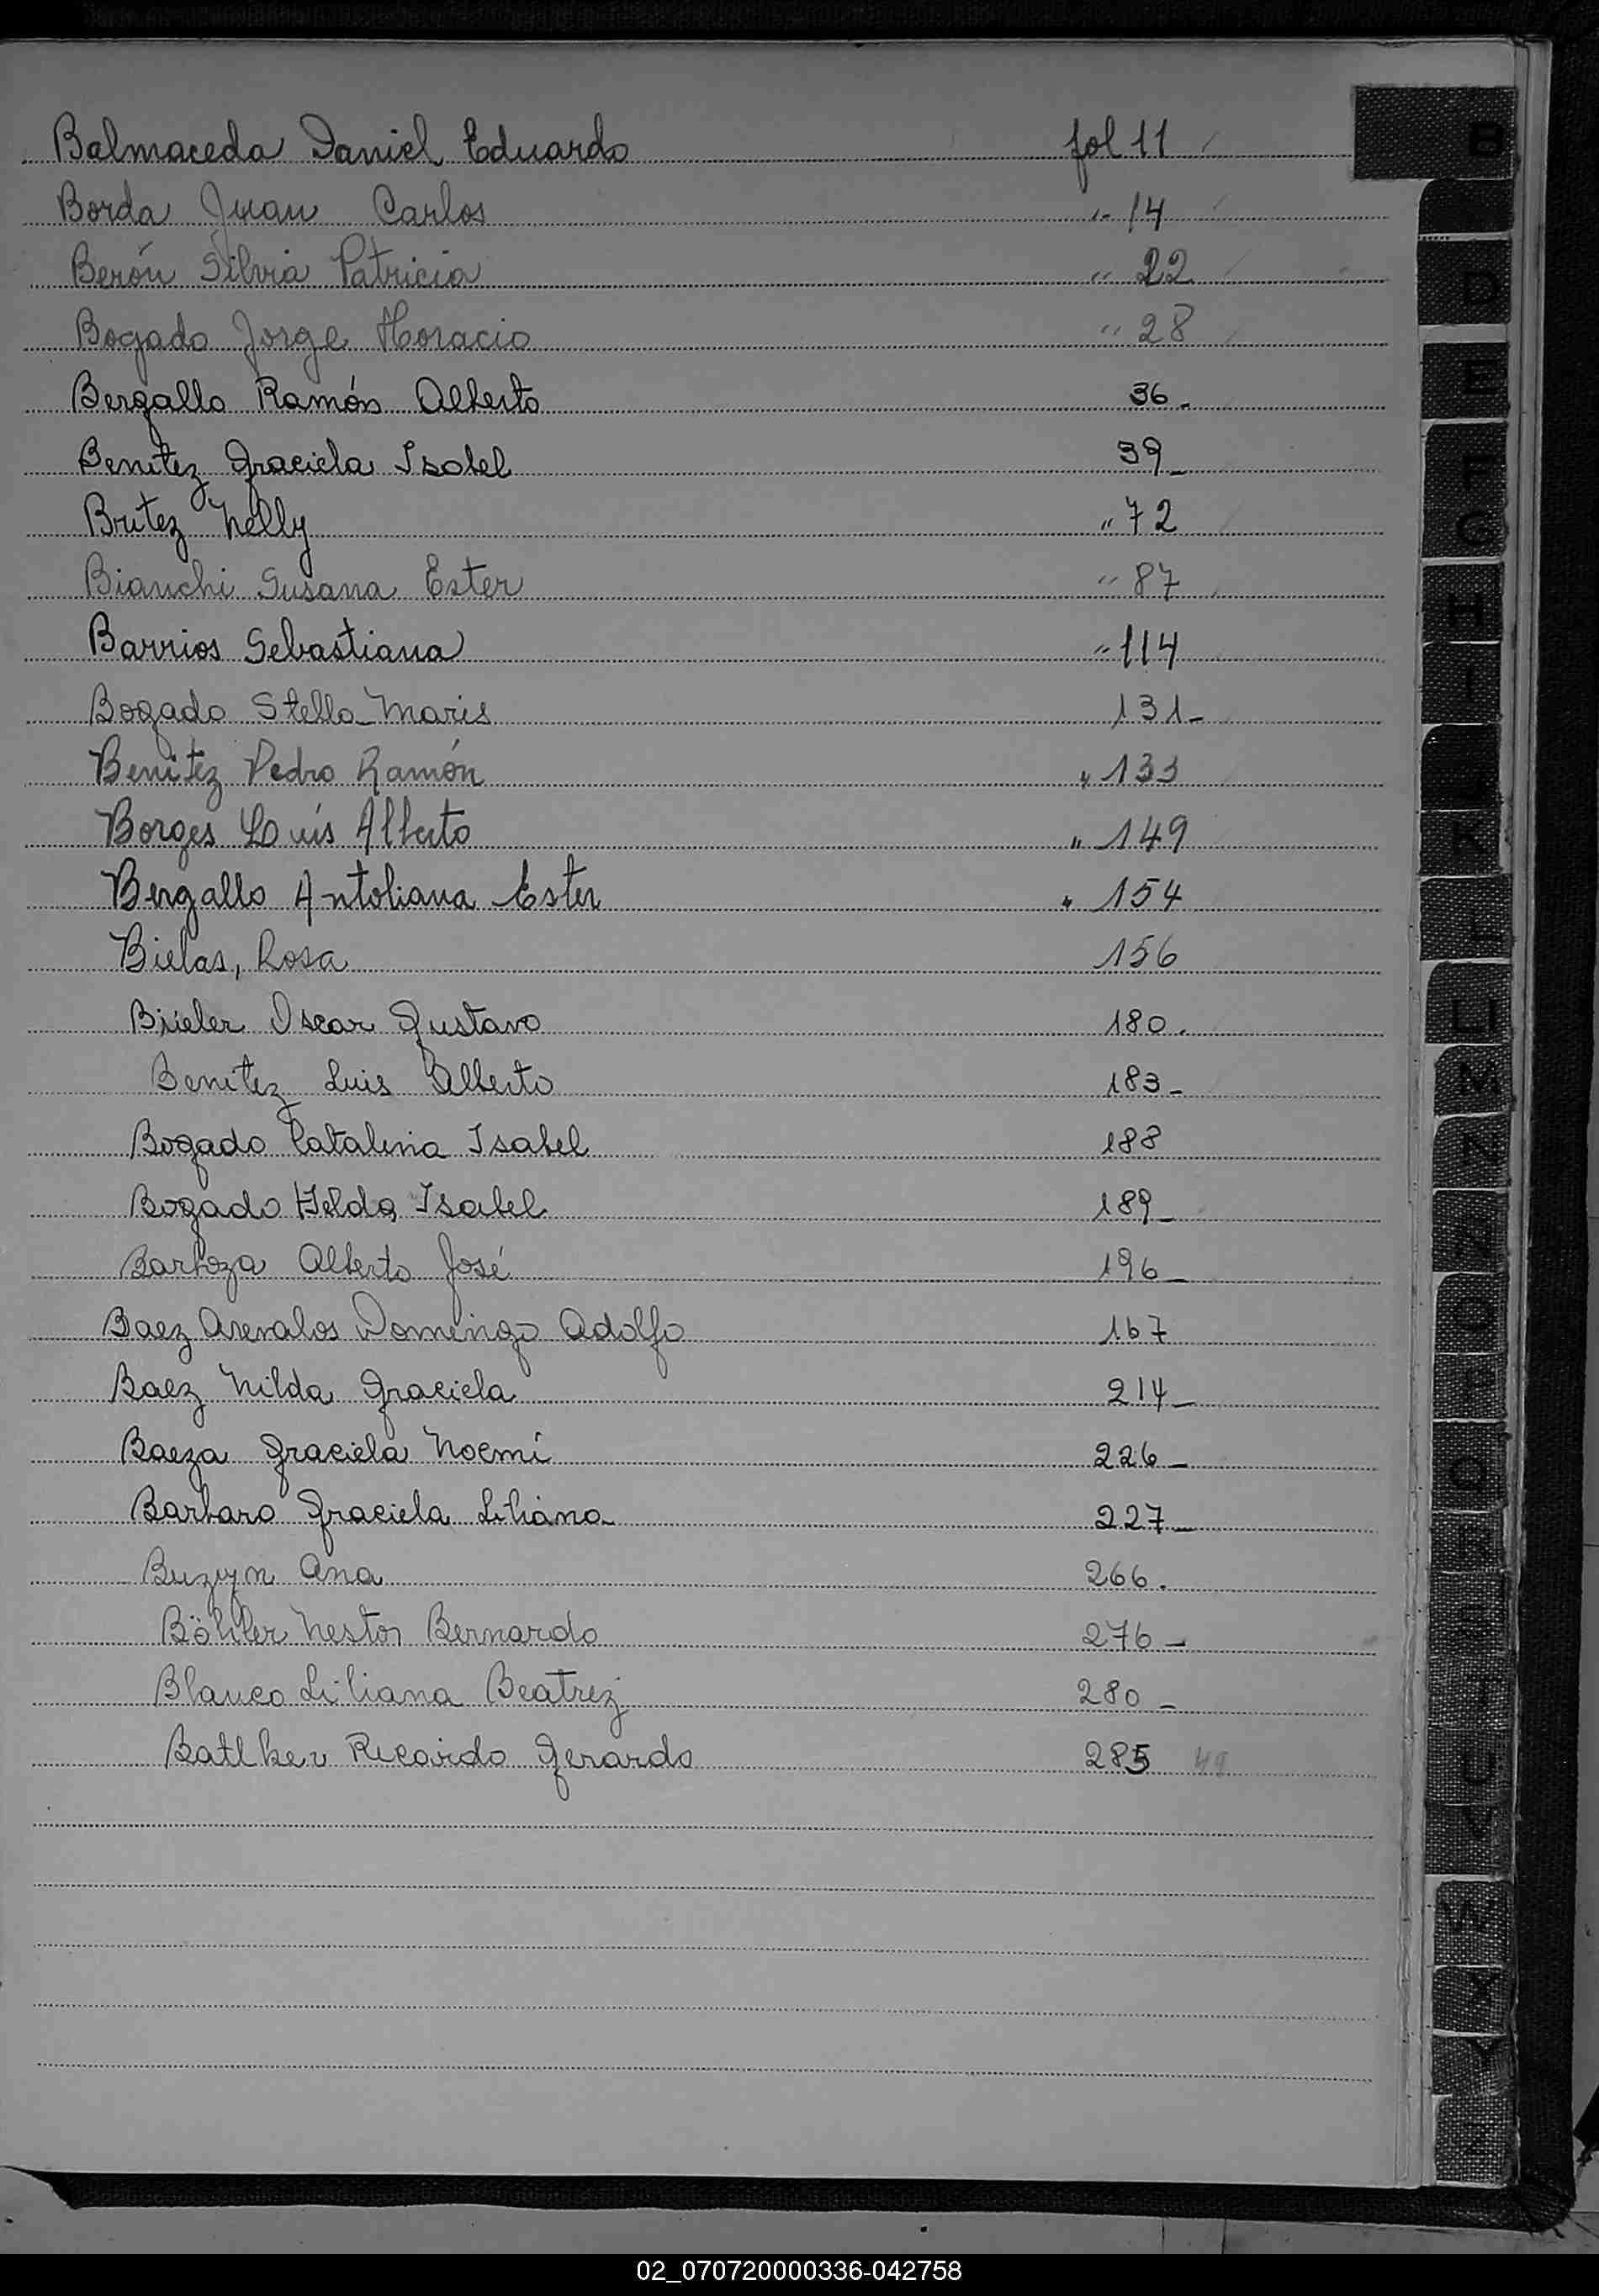 Balmaceda Daniel Eduardo fol 11 B
Borda Juan Carlos " 14
Berón Silvia Patricia " 22
D
Bogado Jorge Horacio " 28
E
Bergallo Ramón Alberto 36.
Benitez Graciela Isabel 39_
F
Britez Nelly " 72
G
Bianchi Susana Ester " 87
H
Barrios Sebastiana " 114
I
Bogado Stella Maris 131_
Benitez Pedro Ramón " 133
J
Borges Luis Alberto " 149
K
Bergallo Antoliana Ester " 154
L
Bielas, Rosa 156
Oscar Gustavo 180.
Ll
Benitez Luis Alberto 183_
M
Bogado Catalina Isabel 188
N
Bogado Helda Isabel 189_
Ñ
Barboza Alberto José 196_
Baez Arevalos Domingo Adolfo 167
O
Baez Nilda Graciela 214_
P
Baeza Graciela Noemí 226_
Q
Barbaro Graciela Liliana 227_
R
Buzyn Ana 266.
Böhler Nestor Bernardo 276_
S
Blanco Liliana Beatriz 280_
T
Ricardo Gerardo 285
U
V
W
X
Y
Z
02_070720000336-042758